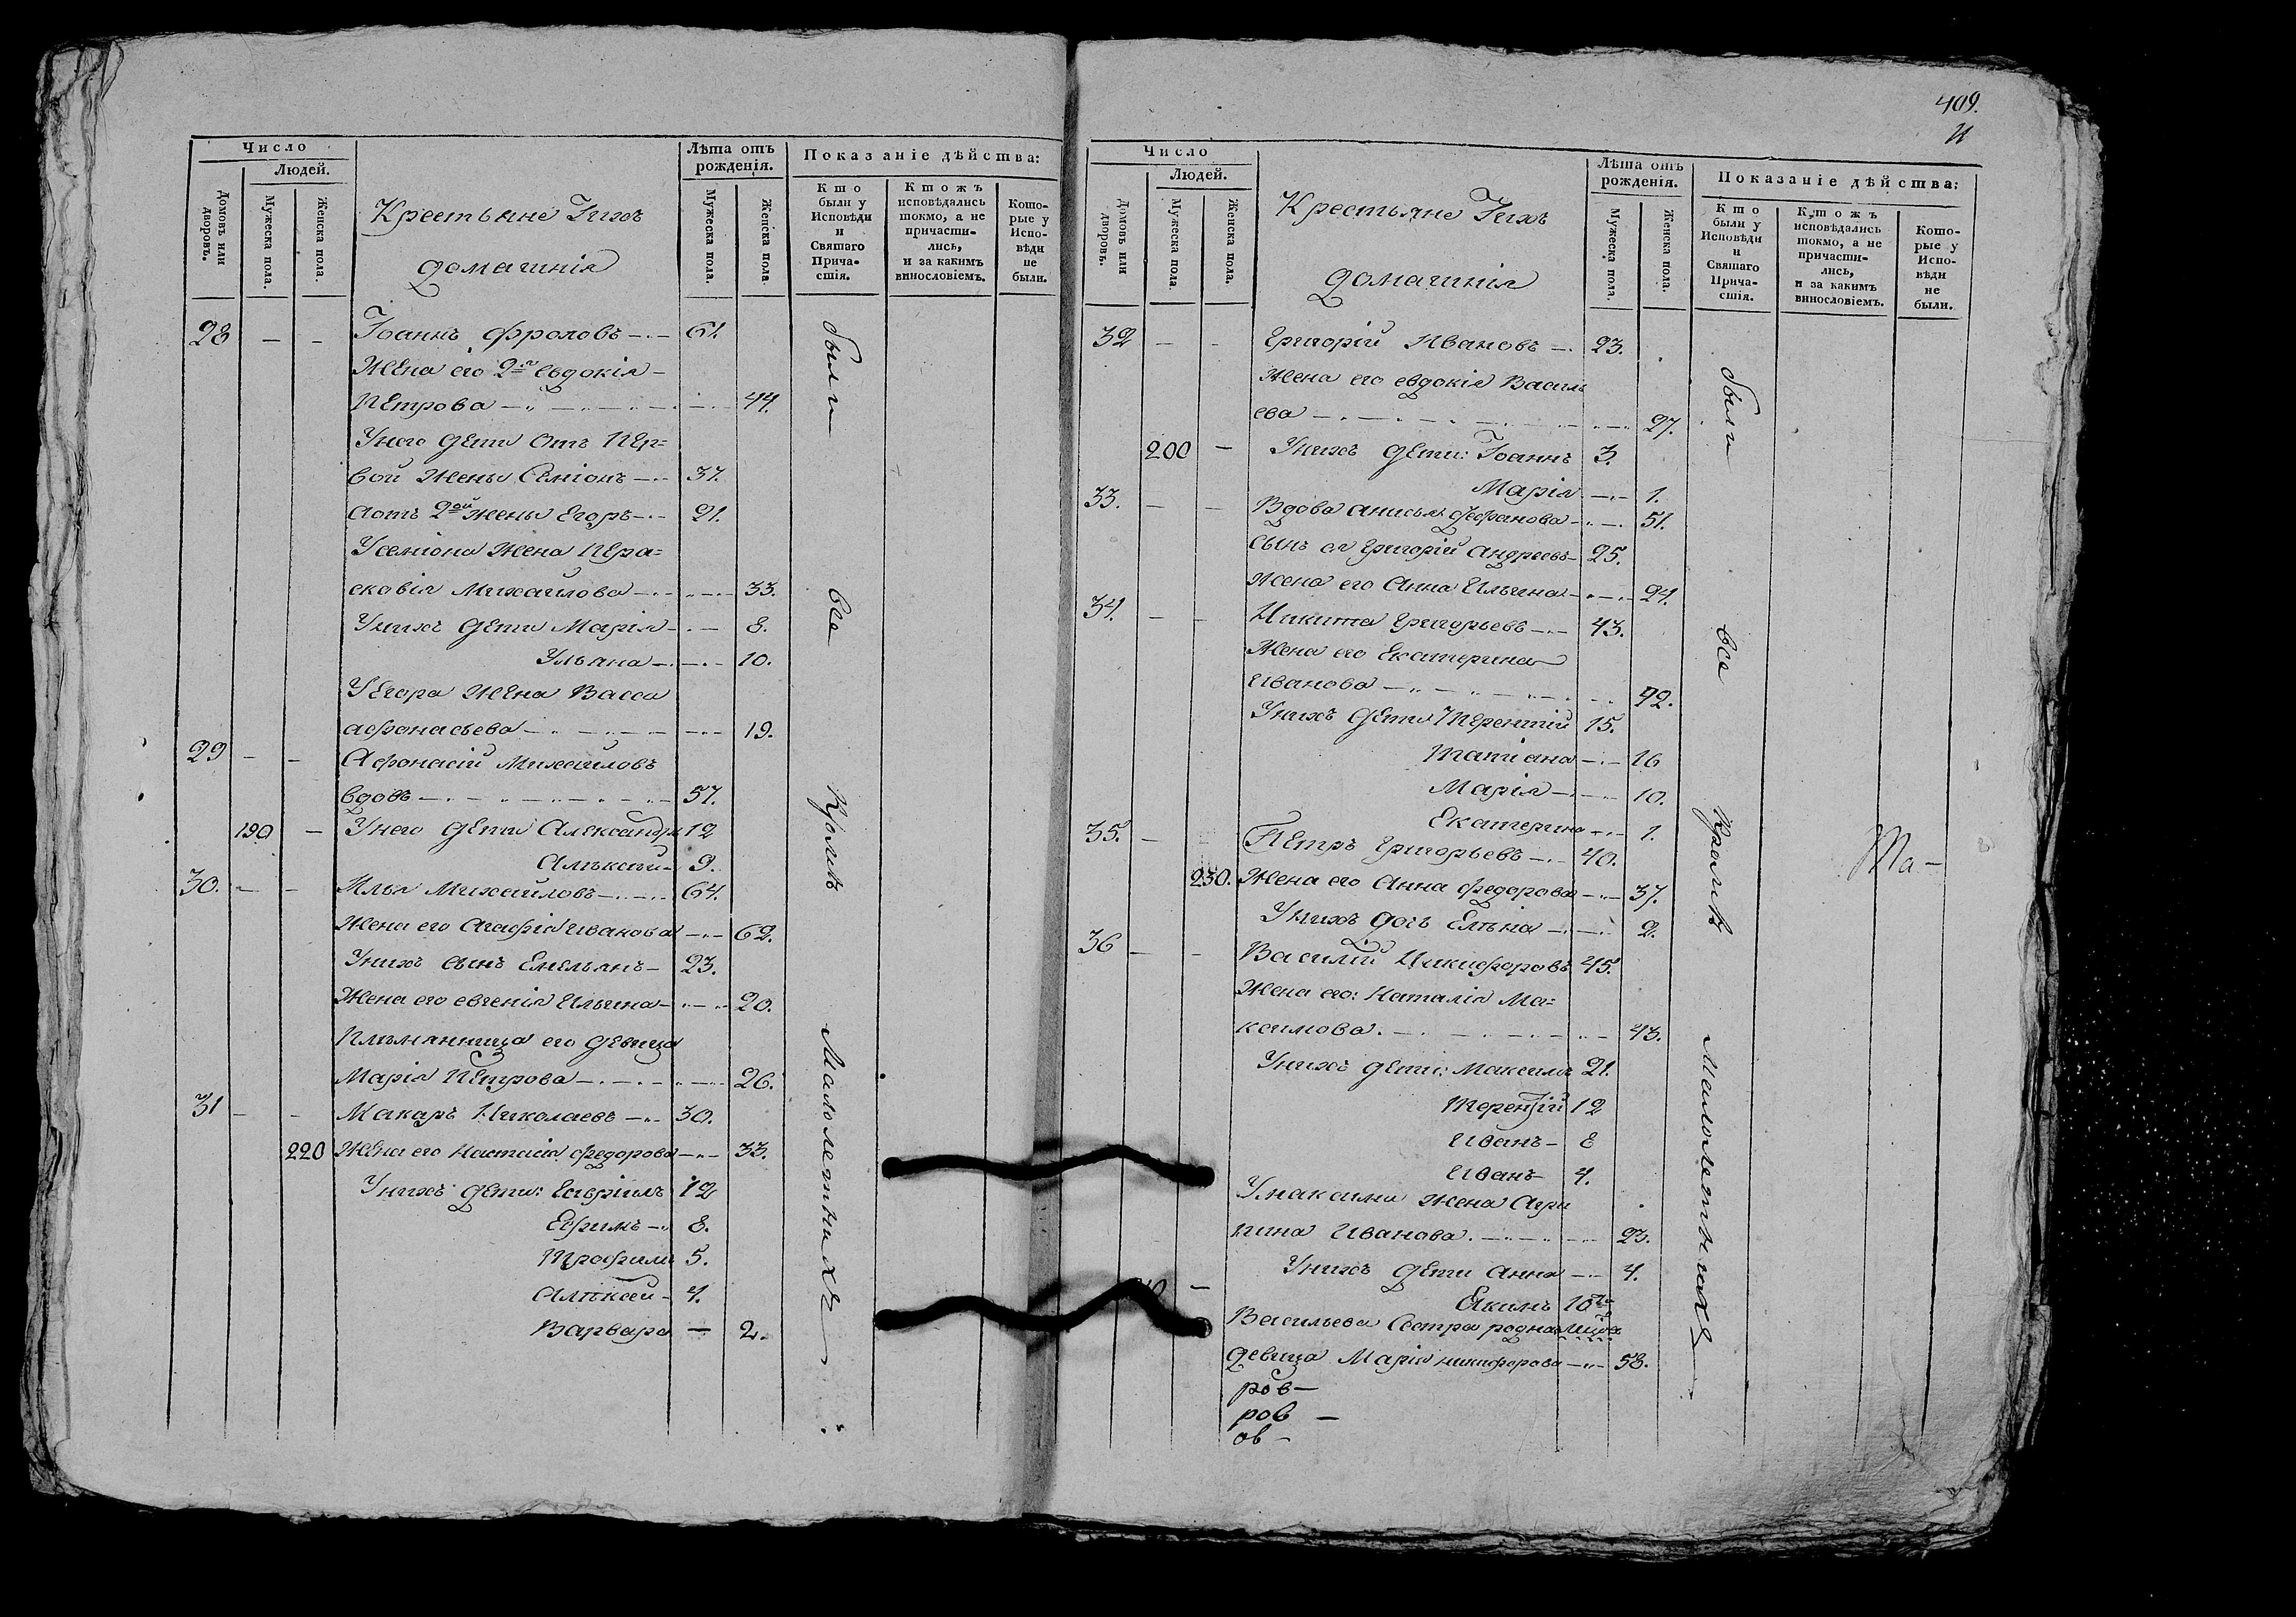 Число
Людей.
Домовъ или дворовъ.
Мужеска пола.
Женска пола.
Крестьяне Іихъ
домашнія
Лѣта отъ рожденія.
Мужеска пола.
Женска пола.
Показаніе дѣйства:
Кто были у Исповѣди и Святаго Причастія.
Ктожъ исповѣдались токмо, а не причастились, и за какимъ винословіемъ.
Которые у Исповѣди не были.
28 — — Іоаннъ Фроловъ — 61.
Жена его 2я Евдокія —
Петрова — 44.
Унего дети Отъ Пер=
вой Жены Семіонъ — 37.
аотъ 2ой жены Егоръ — 21.
Усеміона Жена Пера=
сковія Михайлова — 33.
Унихъ дети Марія — 8.
Ульяна — 10.
УЕгора Жена Васса
афонасьева — 19.
29 — — Афонасій Михайловъ
вдовъ — 57.
190 — Унего дети Александръ 12
Алѣксѣй — 9.
30. — — Илья Михайловъ — 64.
Жена его Агафія Иванова — 62.
Унихъ сынъ Емельянъ — 23.
Жена его евгенія Ильина — 20.
Плѣмянница его девица
Марія Петрова — 26.
31 — — Макаръ Николаевъ — 30.
220 Жена его Настасія Федорова — 33.
Унихъ дети: Гавріилъ 12
Ефимъ — 8.
Трофимъ 5.
Алѣксѣй — 4.
Варвара — 2.
были
все
Кромѣ
Малолетнихъ
409.
Число
Людей.
Домовъ или дворовъ.
Мужеска пола.
Женска пола.
Крестьяне Іихъ
домашнія
Лѣта отъ рожденія.
Мужеска пола.
Женска пола.
Показаніе дѣйства:
Кто были у Исповѣди и Святаго Причастія.
Ктожъ исповѣдались токмо, а не причастились, и за какимъ винословіемъ.
Которые у Исповѣди не были.
32 — — Григорій Ивановъ — 23.
Жена его евдокія Василь
ева — 27.
200 — Унихъ дети: Іоаннъ 3.
Марія — 1.
33. — — Вдова анисья — 51.
Сынъ ея Григорій Андреевъ — 25.
Жена его Анна Ильина — 24.
34. — — Никита Григорьевъ — 43.
Жена его Екатерина
Иванова — 42.
Унихъ дети Терентій 15.
Татіана — 16
Марія — 10.
Екатерина — 1.
35. — Петръ Григорьевъ — 40.
230. Жена его Анна Федорова — 37.
Унихъ дочь Елѣна — 2.
36 — — Василій Никифоровъ 45.
Жена его: Наталія Ма=
ксимова. — 43.
Унихъ дети: Максимъ 21.
Терентій 12
Иванъ — 8
Иванъ 4.
Умаксима Жена Агри
пина Иванова. — 23.
Унихъ дети Анна — 4.
Екимъ
Васильева Сестра родная
девица Марія никифорова — 58.
ров —
ров —
ов —
были
все
Кромѣ
Малолетнихъ
Та —